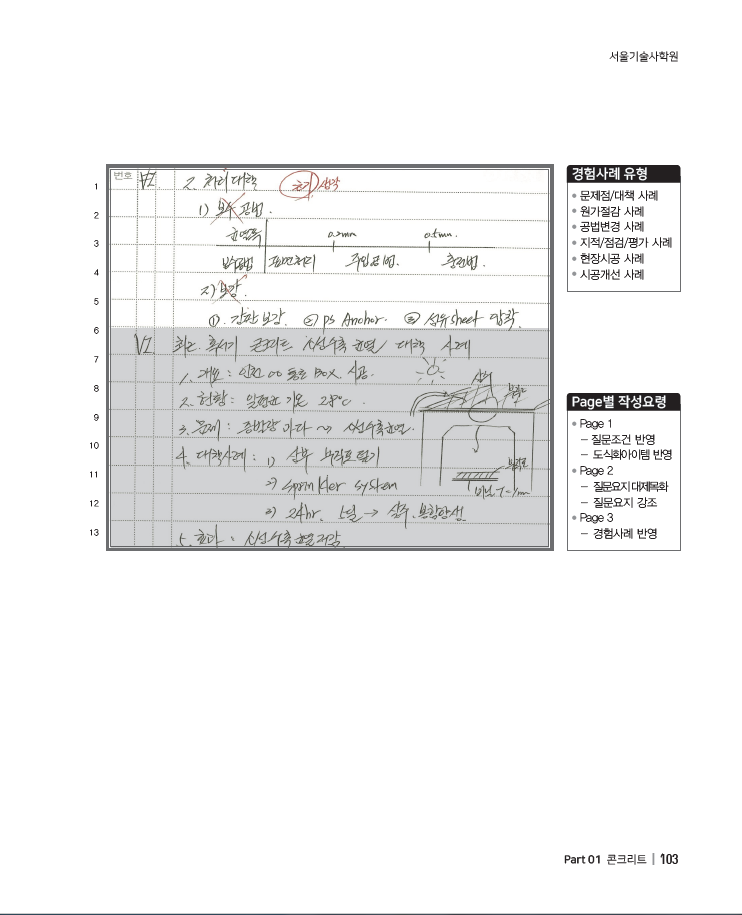 서울기술사학원
번호 Ⅵ. 2. 처리대책 초기 삭각
1) 보수공법.
균열폭 0.2mm 0.5mm
보수공법 표면처리 주입공법. 충전법.
2) 보강
①. 강판보강. ② PS Anchor. ③ 섬유sheet 압착.
Ⅵ. 최근 혹서기 콘크리트 소성수축균열 대책 사례
1. 개요 : 인천 00 통로 BOX 시공.
2. 현황 : 일평균 기온 28℃.
3. 문제 : 증발량 과다 → 소성수축균열.
4. 대책사례 : 1) 상부 부직포 덮기
2) Sprinkler system
3) 24hr. 살수
5. 효과 : 소성수축균열저감
살수
부직포
부직포
1
2
3
4
5
6
7
8
9
10
11
12
13
경험사례 유형
• 문제점/대책 사례
• 원가절감 사례
• 공법변경 사례
• 지적/점검/평가 사례
• 현장시공 사례
• 시공개선 사례
Page별 작성요령
• Page 1
– 질문조건 반영
– 도식화아이템 반영
• Page 2
– 질문요지 대제목화
– 질문요지 강조
• Page 3
– 경험사례 반영
Part 01 콘크리트 | 103